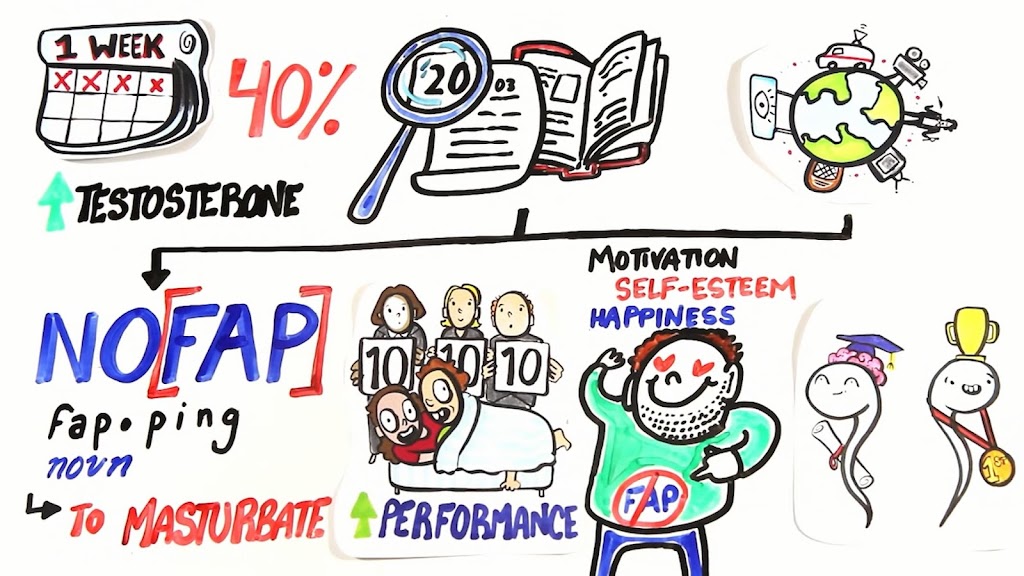 1 WEEK
40%
TESTOSTERONE
20 03
NO[FAP]
fap•ping
noun
TO MASTURBATE
10 10 10
PERFORMANCE
MOTIVATION
SELF-ESTEEM
HAPPINESS
FAP
1st